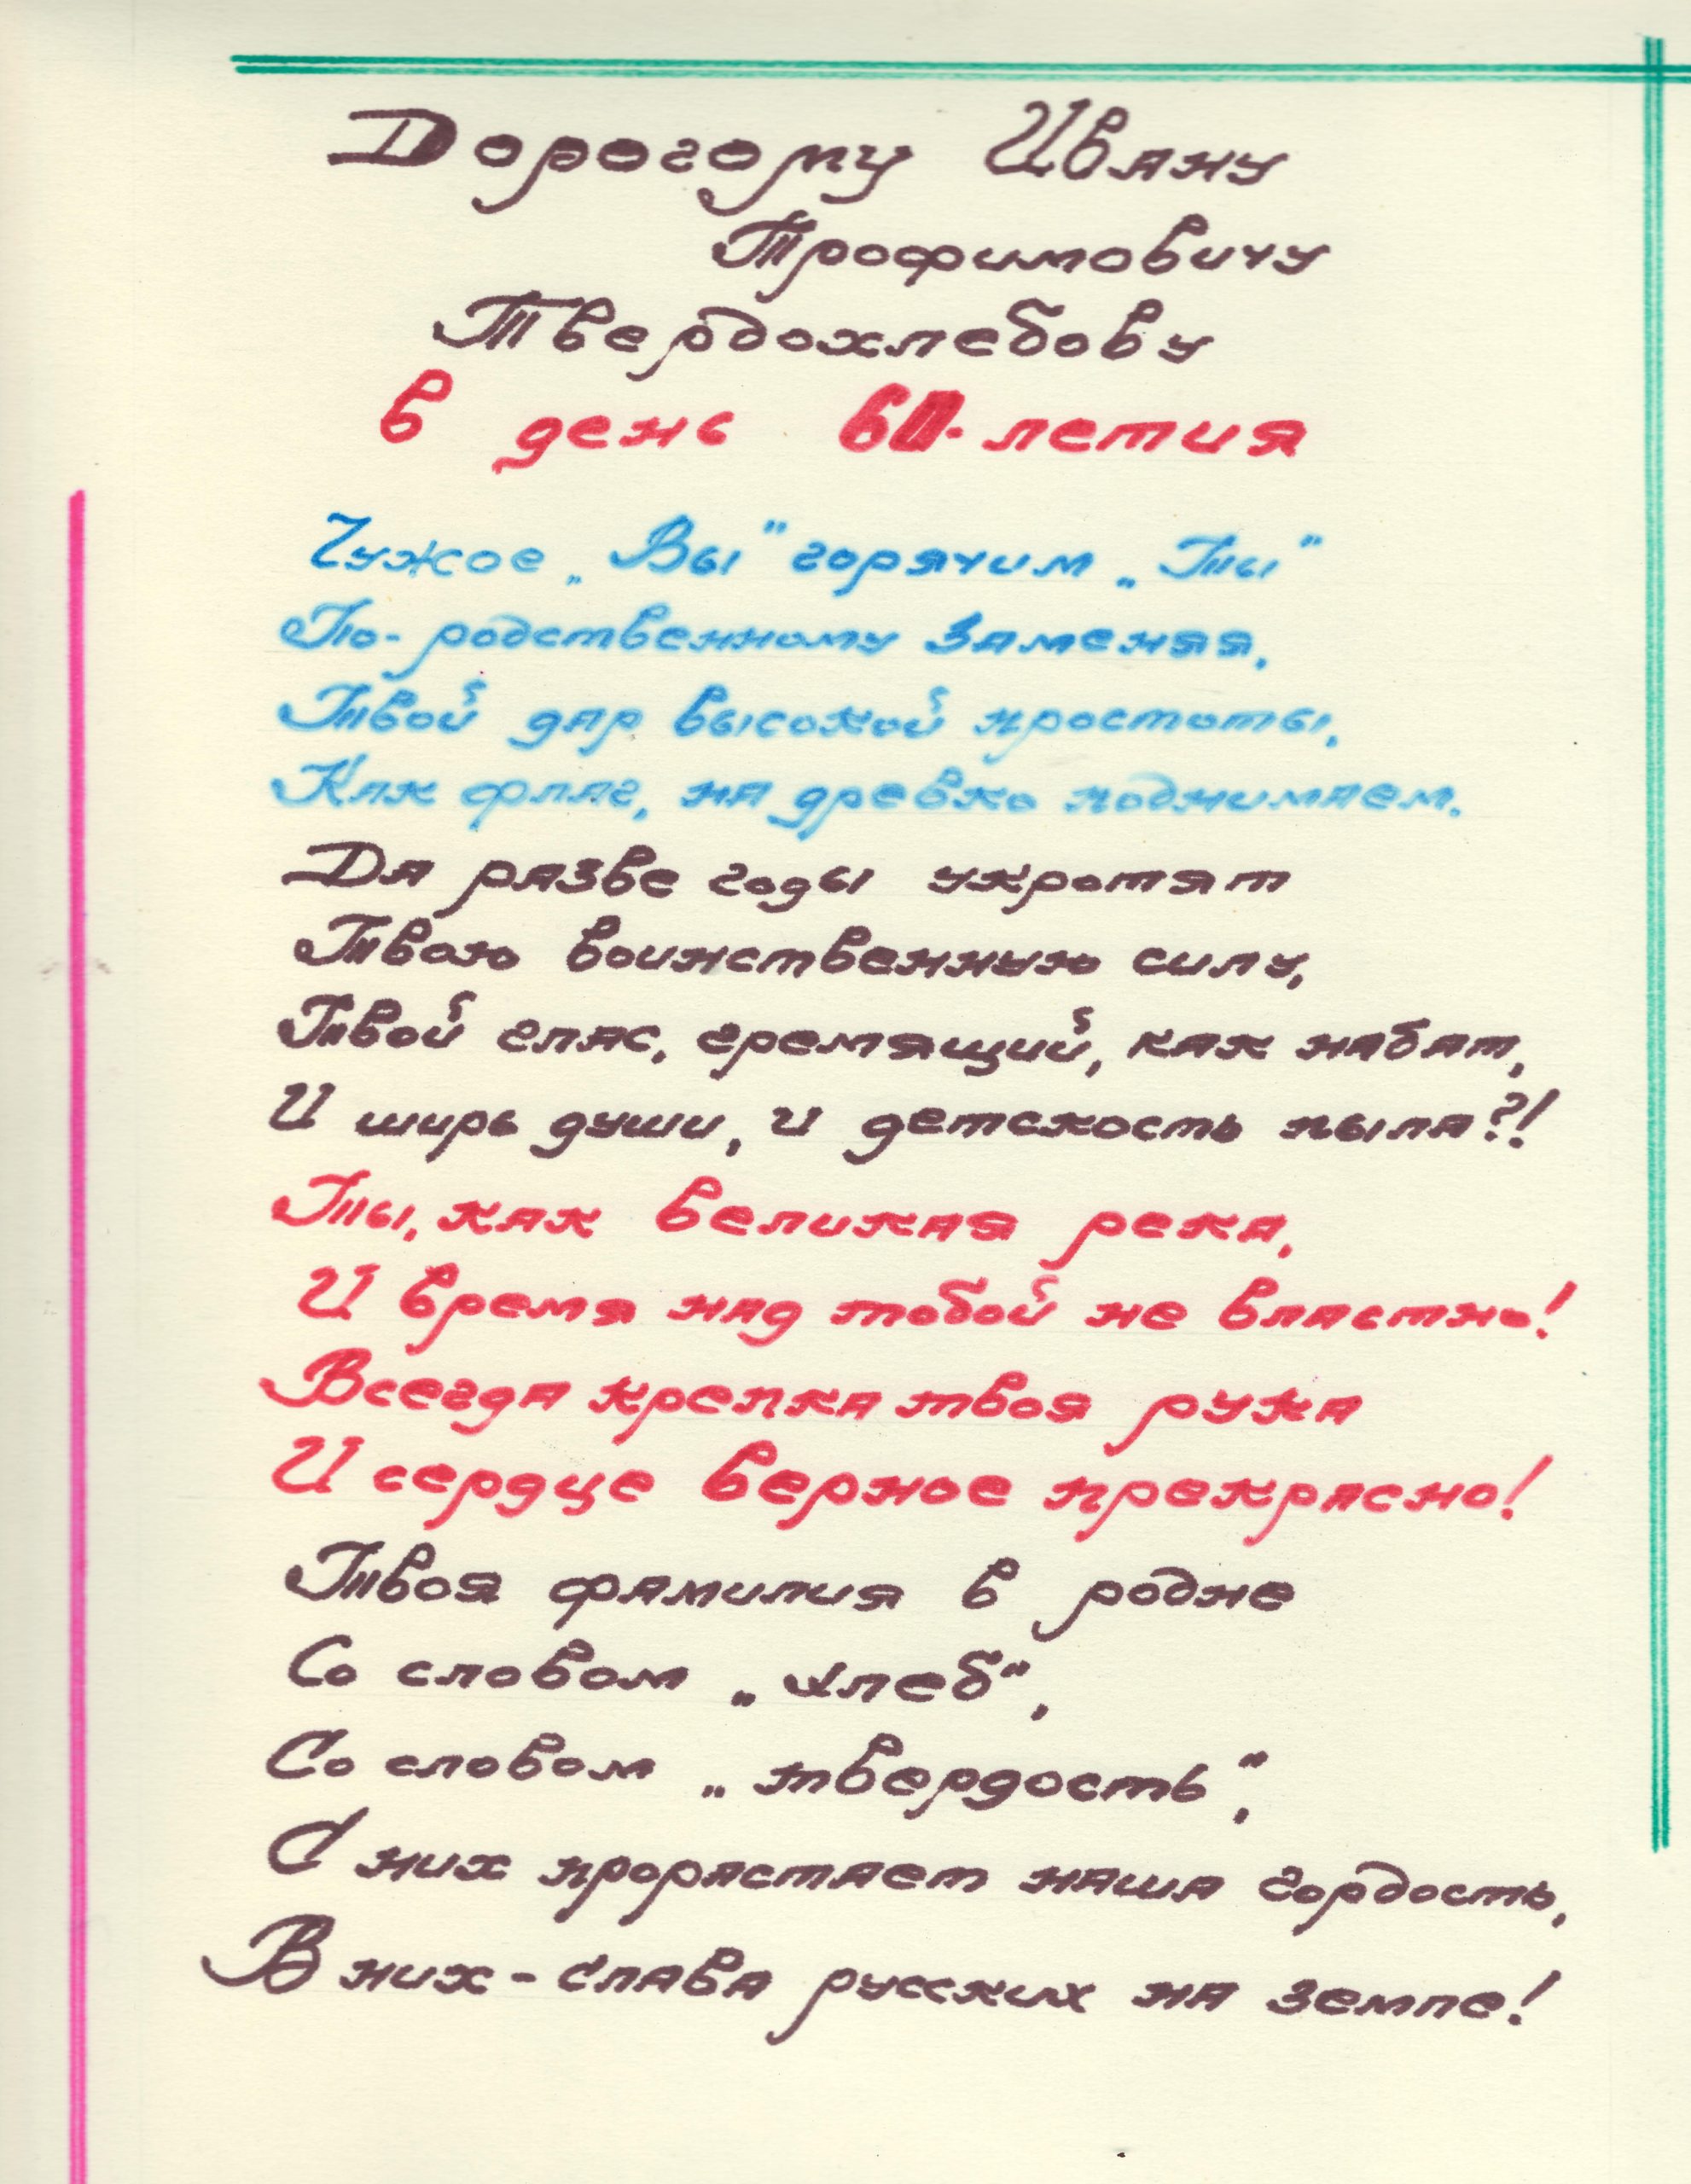 Дорогому Ивану
Трофимовичу
Твердохлебову
в день 60-летия
Чужое „Вы" горячим „Ты"
По-родственному заменяя,
Твой дар высокой простоты,
Как флаг, на древко поднимаем.
Да разве годы укротят
Твою воинственную силу,
Твой глас, гремящий, как набат,
И ширь души, и детскость пыла?!
Ты, как великая река,
И время над тобой не властно!
Всегда крепка твоя рука
И сердце верное прекрасно!
Твоя фамилия в родне
Со словом „хлеб",
Со словом „твердость",
С них прорастает наша гордость,
В них - слава русских на земле!